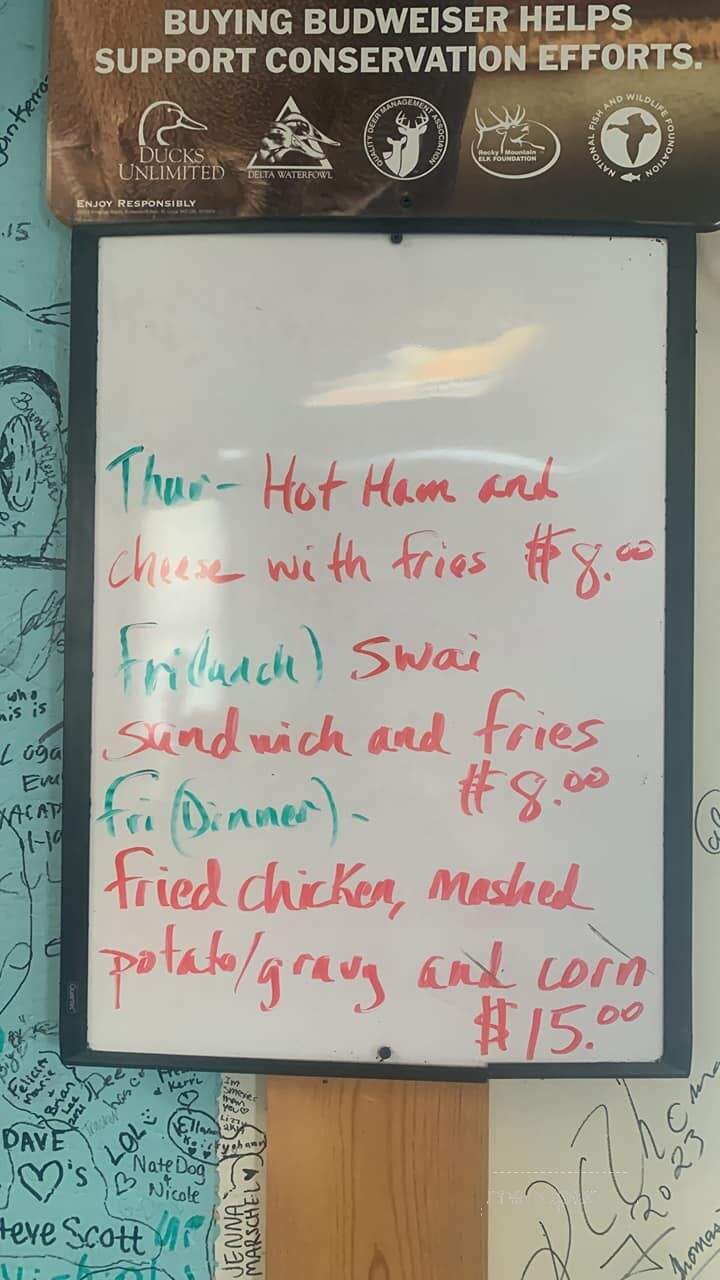 BUYING BUDWEISER HELPS
SUPPORT CONSERVATION EFFORTS.
DUCKS
UNLIMITED
DELTA WATERFOWL
QUALITY DEER MANAGEMENT ASSOCIATION
Rocky Mountain
ELK FOUNDATION
NATIONAL FISH AND WILDLIFE FOUNDATION
ENJOY RESPONSIBLY
.15
Thur- Hot Ham and
cheese with fries $8.00
Fri(lunch) Swai
sandwich and fries
$8.00
Fri (Dinner)-
fried chicken, mashed
potato/gravy and corn
$15.00
Quartet
who
his is
Felicia
Brian
DAVE
♡'s
LOL
Nate Dog
&
Nicole
teve Scott
JENNA
MARSCHEL
2023
Thomas